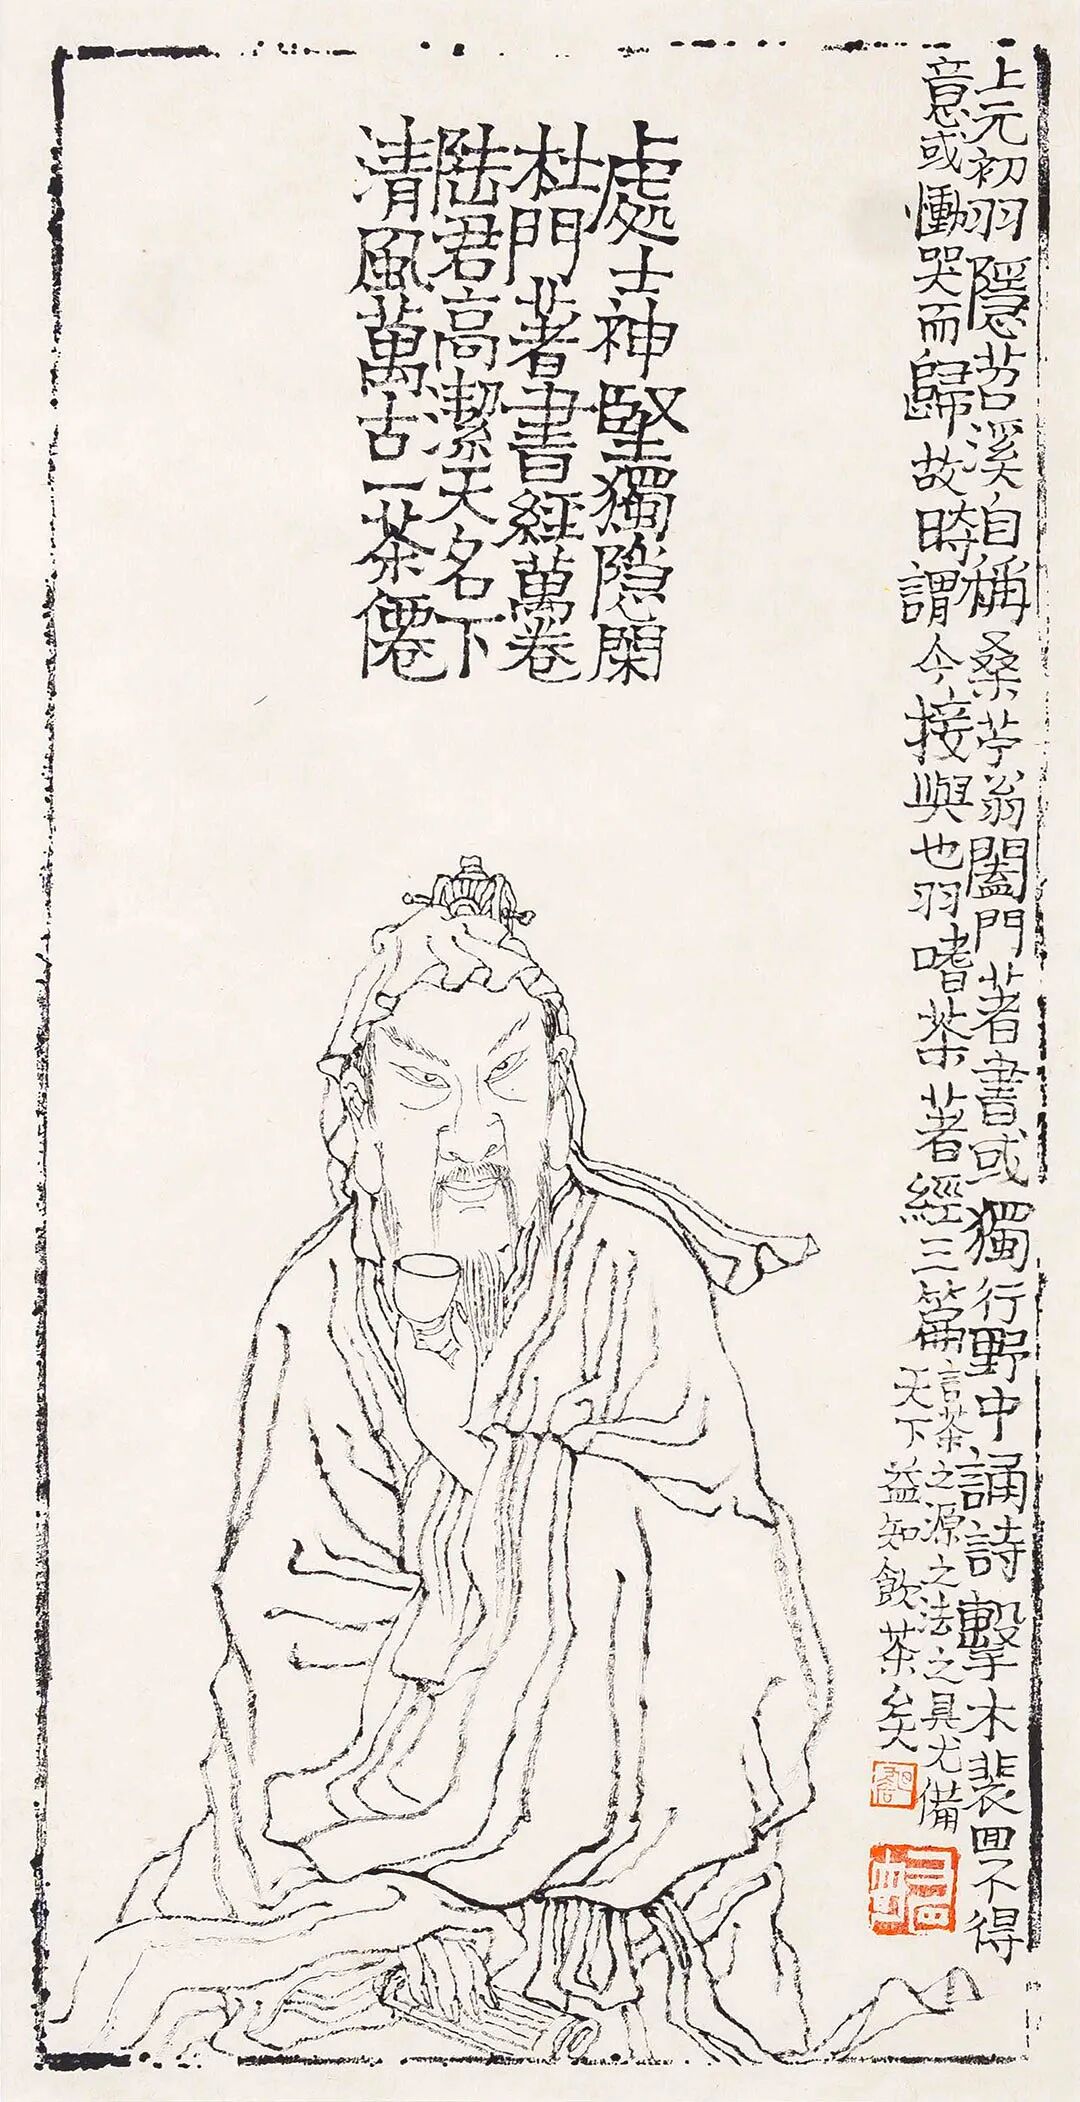 上元初羽隱苕溪自稱桑苧翁闔門著書或獨行野中誦詩擊木裴回不得
意或慟哭而歸故時謂今接與也羽嗜茶著經三篇言茶之源之法之具尤備
天下益知飲茶矣
處士神堅獨隐閑
杜門著書經萬卷
陆君高潔天名下
清風萬古一茶僊